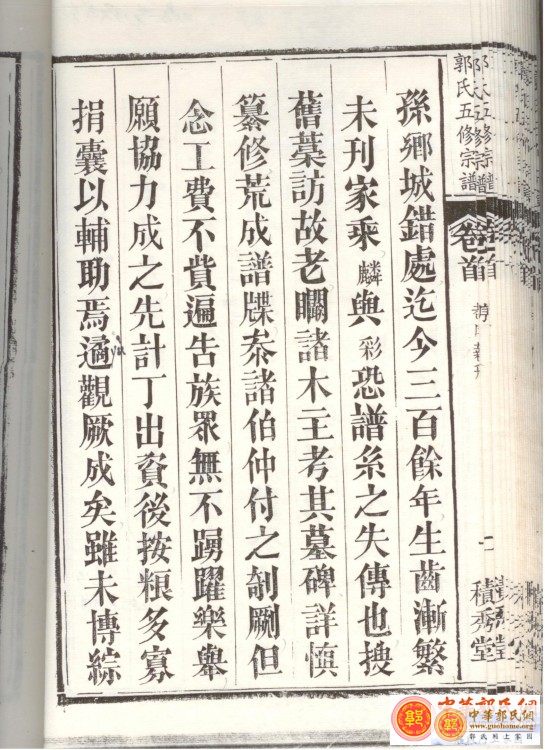 孫鄉城錯處迄今三百餘年生齒漸繁
未刊家乘麟與彩恐譜系之失傳也搜
舊藁訪故老矙諸木主考其墓碑詳慎
纂修荒成譜牒叅諸伯仲付之剞劂但
念工費不貲遍告族眾無不踴躍樂舉
願協力成之先計丁出資後按粮多寡
捐囊以輔助焉遹觀厥成矣雖未博綜
郭氏五修宗譜
卷首
積秀堂
中華郭氏網
中華郭氏網
www.guohome.org
郭氏网上家园